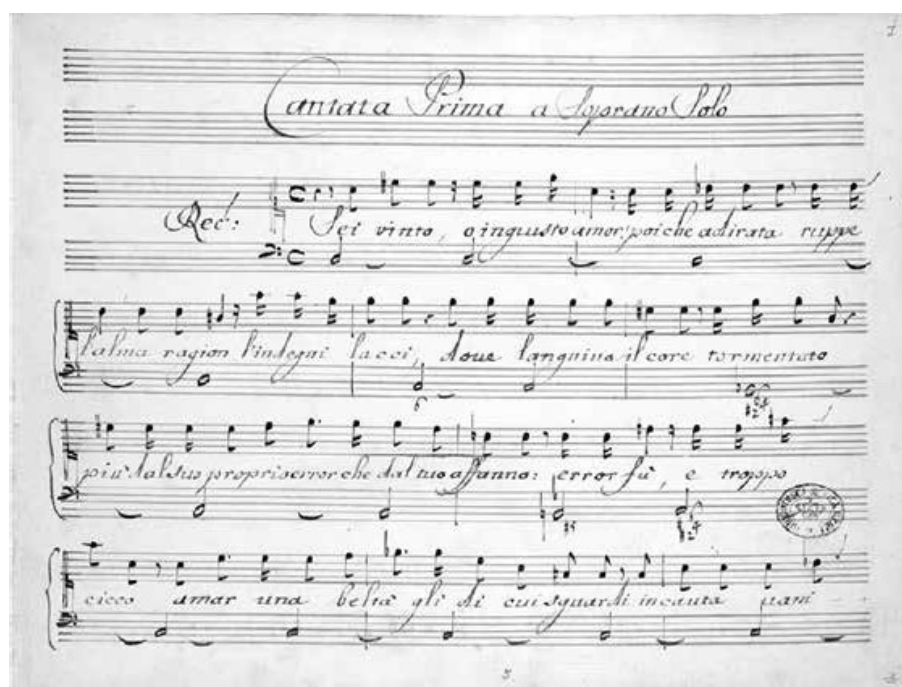 Cantata Prima a Soprano Solo
Rec: Sei vinto, o ingiusto amor; poiche adirata ruppe
l'alma ragion l'indegni lacci, doue languiua il core tormentato
più dal suo proprio error che dal tuo affanno: error fù, e troppo
cieco amar una beltà gli di cui sguardi incauta uani